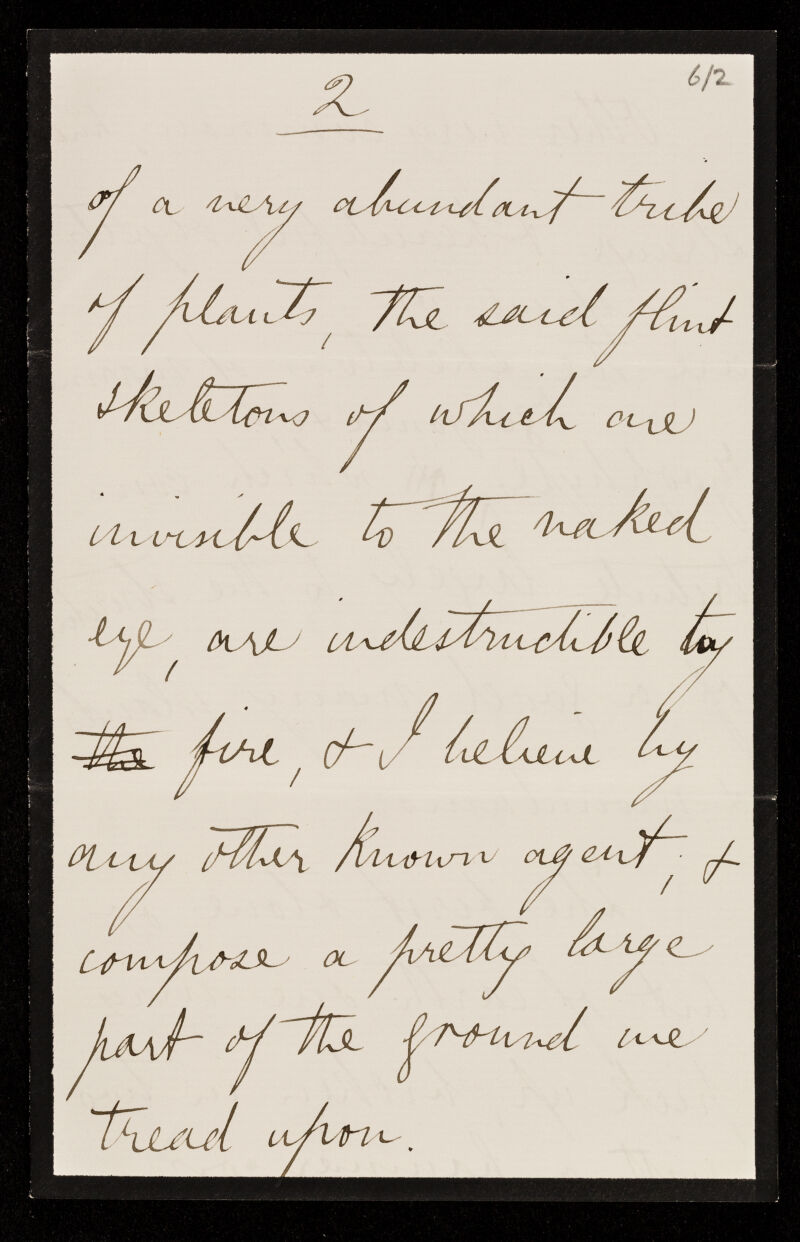 6/2
2
of a very abundant tribe
of plants, the said flint
skeletons of which are
invisible to the naked
eye, are indestructible by
the fire, & I believe by
any other known agent; &
compose a pretty large
part of the ground we
tread upon.